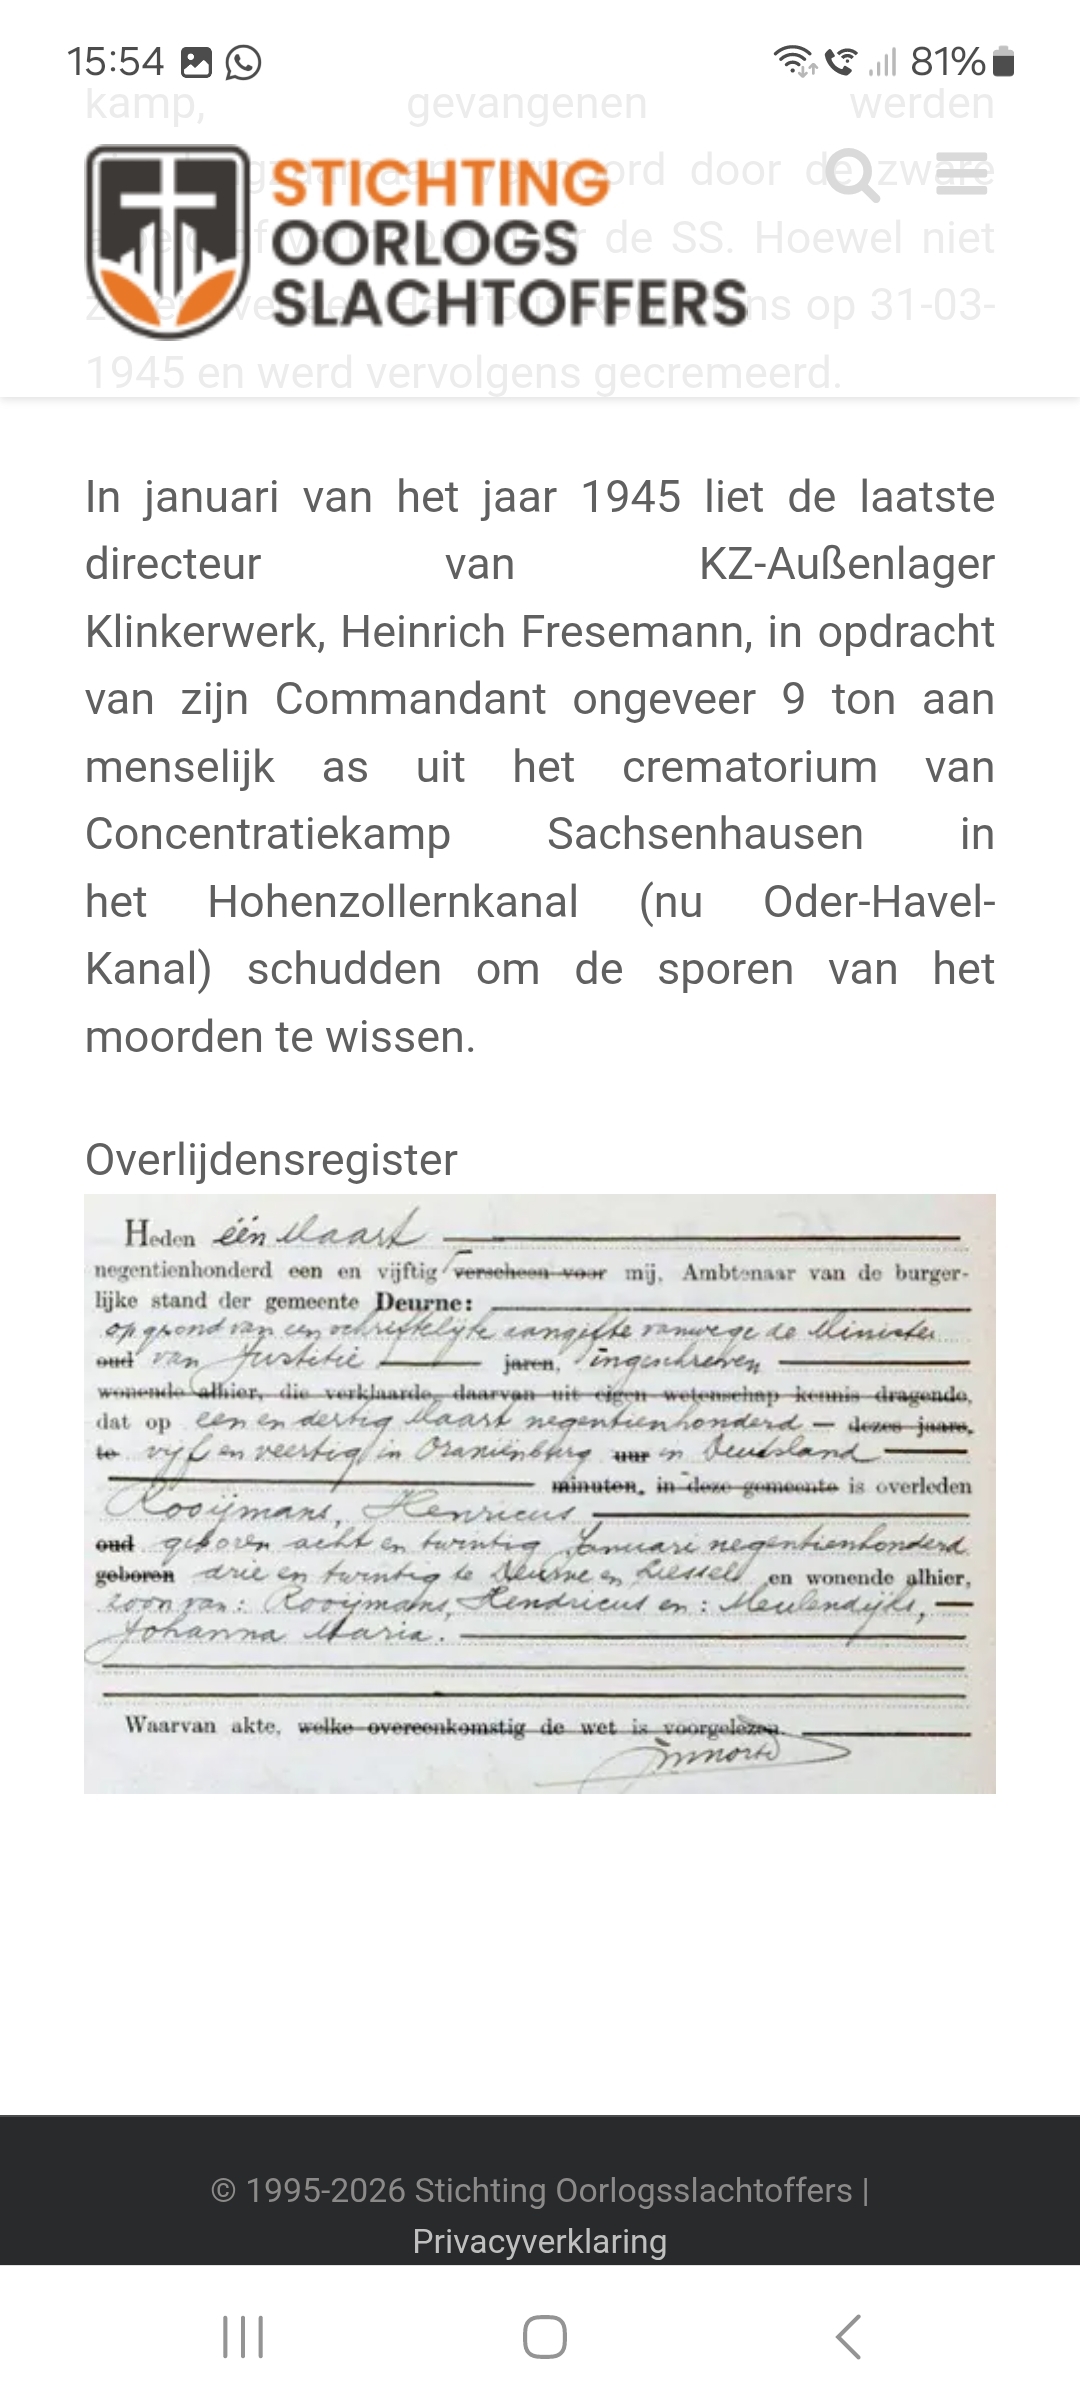 15:54
81%
kamp, gevangenen werden
door de zware
de SS. Hoewel niet
op 31-03-
1945 en werd vervolgens gecremeerd.
STICHTING
OORLOGS
SLACHTOFFERS
In januari van het jaar 1945 liet de laatste
directeur van KZ-Außenlager
Klinkerwerk, Heinrich Fresemann, in opdracht
van zijn Commandant ongeveer 9 ton aan
menselijk as uit het crematorium van
Concentratiekamp Sachsenhausen in
het Hohenzollernkanal (nu Oder-Havel-
Kanal) schudden om de sporen van het
moorden te wissen.
Overlijdensregister
Heden één Maart
negentienhonderd een en vijftig verscheen voor mij, Ambtenaar van de burger-
lijke stand der gemeente Deurne:
op grond van een schriftelijke aangifte vanwege de Minister
oud van Justitie jaren, ingeschreven
wonende alhier, die verklaarde, daarvan uit eigen wetenschap kennis dragende,
dat op een en dertig Maart negentienhonderd dezes jaars,
te vijf en veertig in Oraniënberg uur in Duitsland
minuten, in deze gemeente is overleden
Rooijmans, Henricus
oud geboren acht en twintig Januari negentienhonderd
geboren drie en twintig te Deurne en Liessel en wonende alhier,
zoon van: Rooijmans, Hendricus en: Meulendijks,
Johanna Maria.
Waarvan akte, welke overeenkomstig de wet is voorgelezen.
© 1995-2026 Stichting Oorlogsslachtoffers |
Privacyverklaring